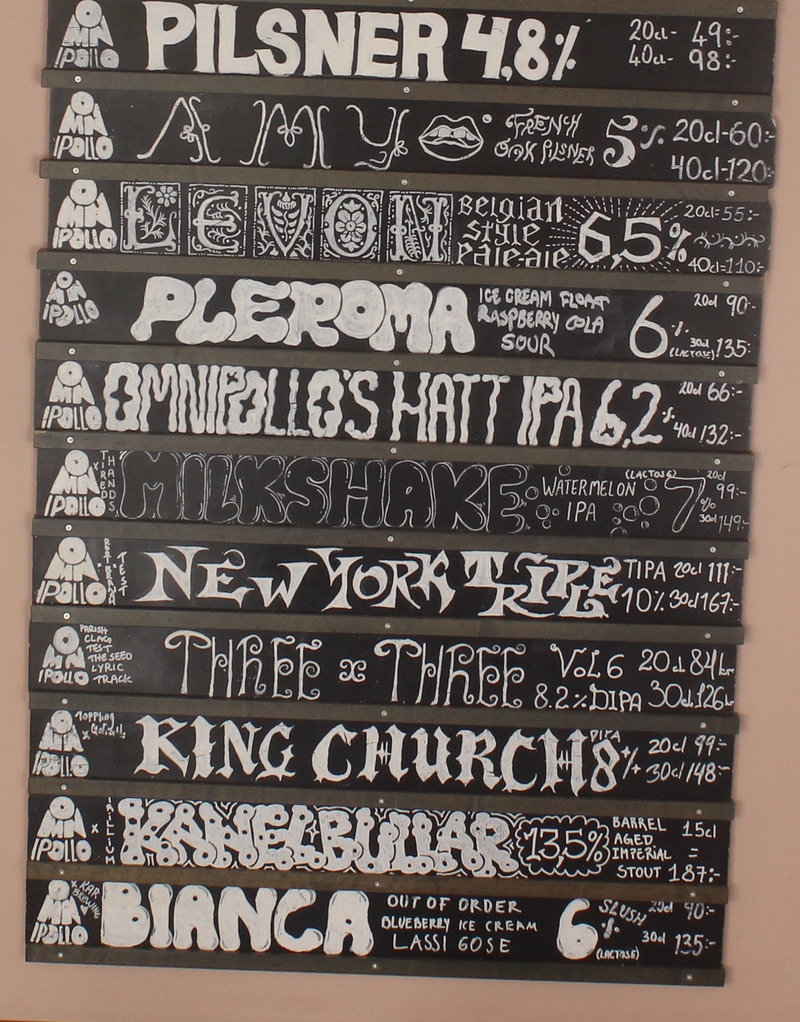 OMNIPOLLO PILSNER 4,8% 20cl- 49:-
40cl- 98:-
OMNIPOLLO AMY FRENCH OAK PILSNER 5% 20cl-60:-
40cl-120:-
OMNIPOLLO LEVON Belgian style Pale-ale 6,5% 20cl=55:-
40cl=110:-
OMNIPOLLO PLEROMA ICE CREAM FLOAT RASPBERRY COLA SOUR 6% (LACTOSE) 20cl 90:-
30cl 135:-
OMNIPOLLO OMNIPOLLO'S HATT IPA 6,2% 20cl 66:-
40cl 132:-
OMNIPOLLO x TIRED HANDS MILKSHAKE WATERMELON IPA (LACTOSE) 7% 20cl 99:-
30cl 149:-
OMNIPOLLO TEST NEW YORK TRIPLE TIPA 10% 20cl 111:-
30cl 167:-
OMNIPOLLO PARISH CLAG TEST THE SEED LYRIC TRACK THREE x THREE VOL 6 20cl 84kr
8.2% DIPA 30cl 126kr
OMNIPOLLO x Toppling Goliath KING CHURCH DIPA 8% 20cl 99:-
30cl 148:-
OMNIPOLLO x TRILLIUM KANELBULLAR 13,5% BARREL AGED IMPERIAL STOUT 15cl = 187:-
OMNIPOLLO x KAR BREWING BIANCA OUT OF ORDER
BLUEBERRY ICE CREAM
LASSI GOSE 6% SLUSH (LACTOSE) 20cl 90:-
30cl 135:-